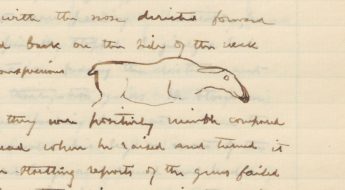 with the nose directed forward
d back on the side of the neck
onspicuous
they were positively nimble compared
ead when he raised and turned it
startling reports of the guns failed